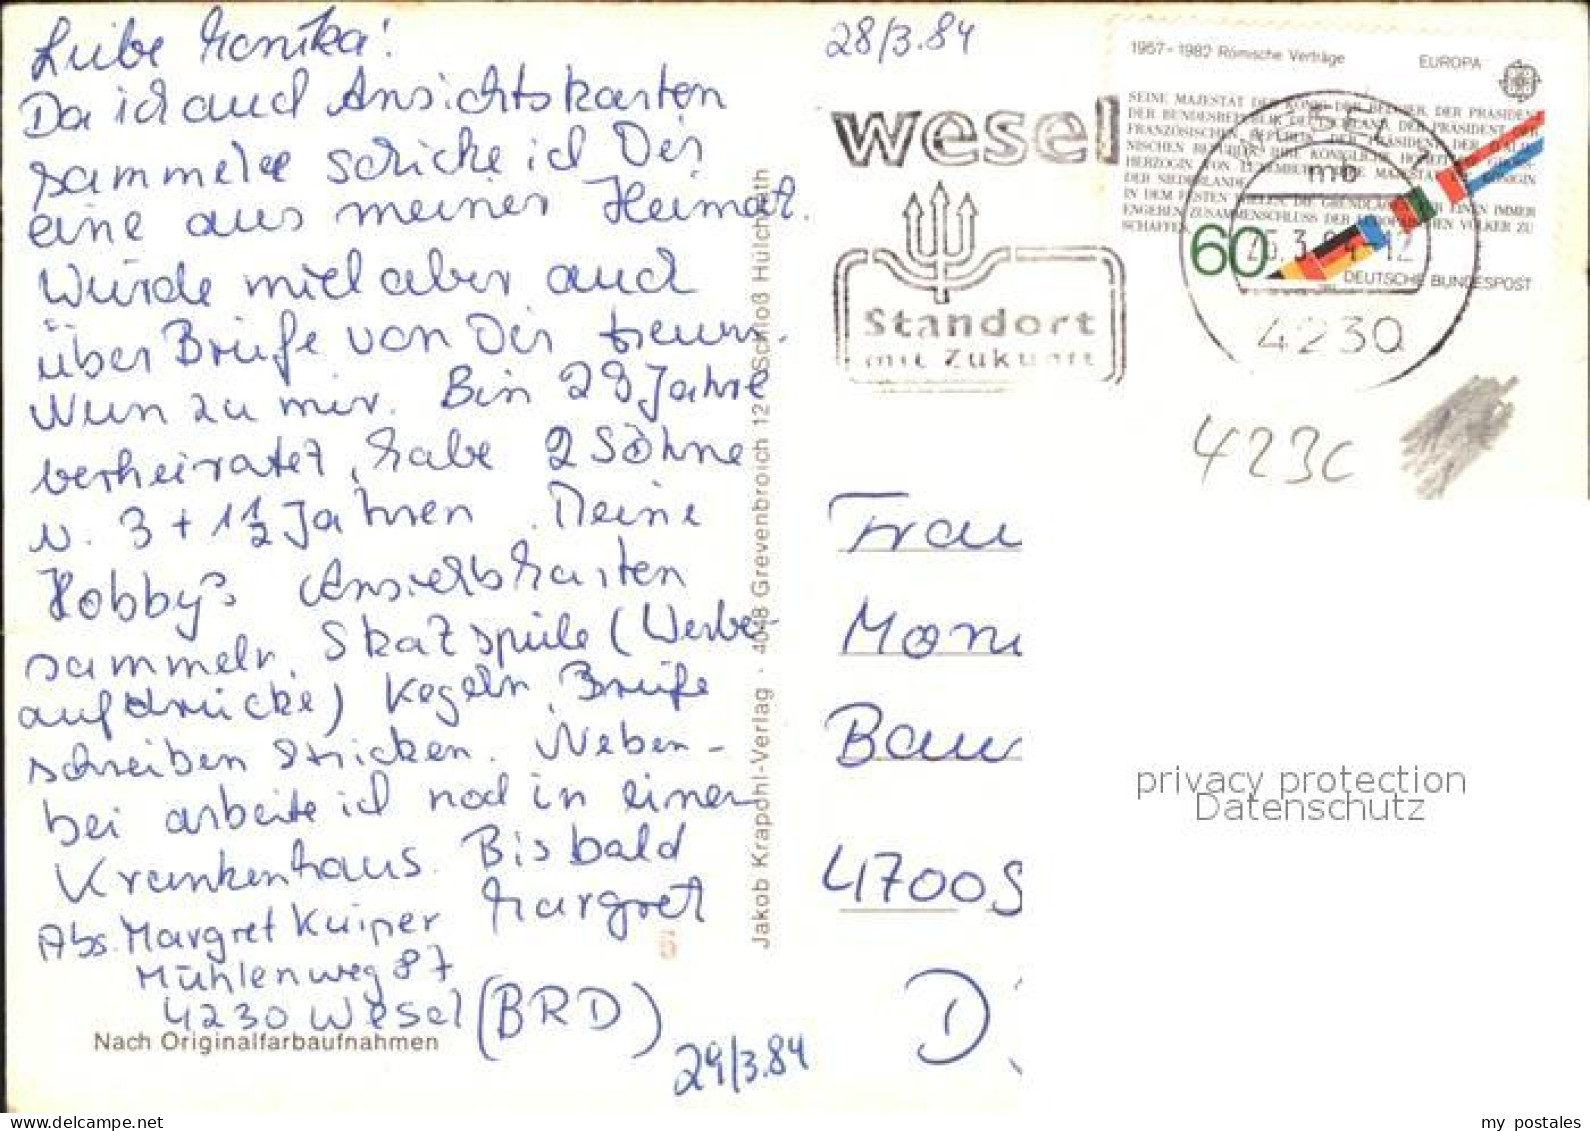 Liebe Monika!
Da ich auch Ansichtskarten
sammele schicke ich Dir
eine aus meiner Heimat.
Würde mich aber auch
über Briefe von Dir freuen.
Nun zu mir. Bin 28 Jahre
verheiratet, habe 2 Söhne
v. 3 + 1 1/2 Jahren. Meine
Hobby's Ansichtskarten
sammeln, Skatspiele (Werbe-
aufdrucke) Kegeln, Briefe
schreiben Stricken. Neben-
bei arbeite ich noch in einem
Krankenhaus. Bis bald
Margret
Abs. Margret Kuiper
Mühlenweg 87
4230 Wesel (BRD)
Nach Originalfarbaufnahmen
29/3.84
Jakob Krapohl-Verlag · 4048 Grevenbroich 12 · Schloß Hülchrath
28/3.84
wesel
Standort
mit Zukunft
1957-1982 Römische Verträge
EUROPA
SEINE MAJESTÄT DER KÖNIG DER BELGIER, DER PRÄSIDENT
DER BUNDESREPUBLIK DEUTSCHLAND, DER PRÄSIDENT DER
FRANZÖSISCHEN REPUBLIK, DER PRÄSIDENT DER ITALIE-
NISCHEN REPUBLIK, IHRE KÖNIGLICHE HOHEIT DIE GROSS-
HERZOGIN VON LUXEMBURG, IHRE MAJESTÄT DIE KÖNIGIN
DER NIEDERLANDE,
IN DEM FESTEN WILLEN, DIE GRUNDLAGEN FÜR EINEN IMMER
ENGEREN ZUSAMMENSCHLUSS DER EUROPÄISCHEN VÖLKER ZU
SCHAFFEN,
60
DEUTSCHE BUNDESPOST
mb
4230
4230
Frau
Moni
Bau
4700
D
privacy protection
Datenschutz
my postales